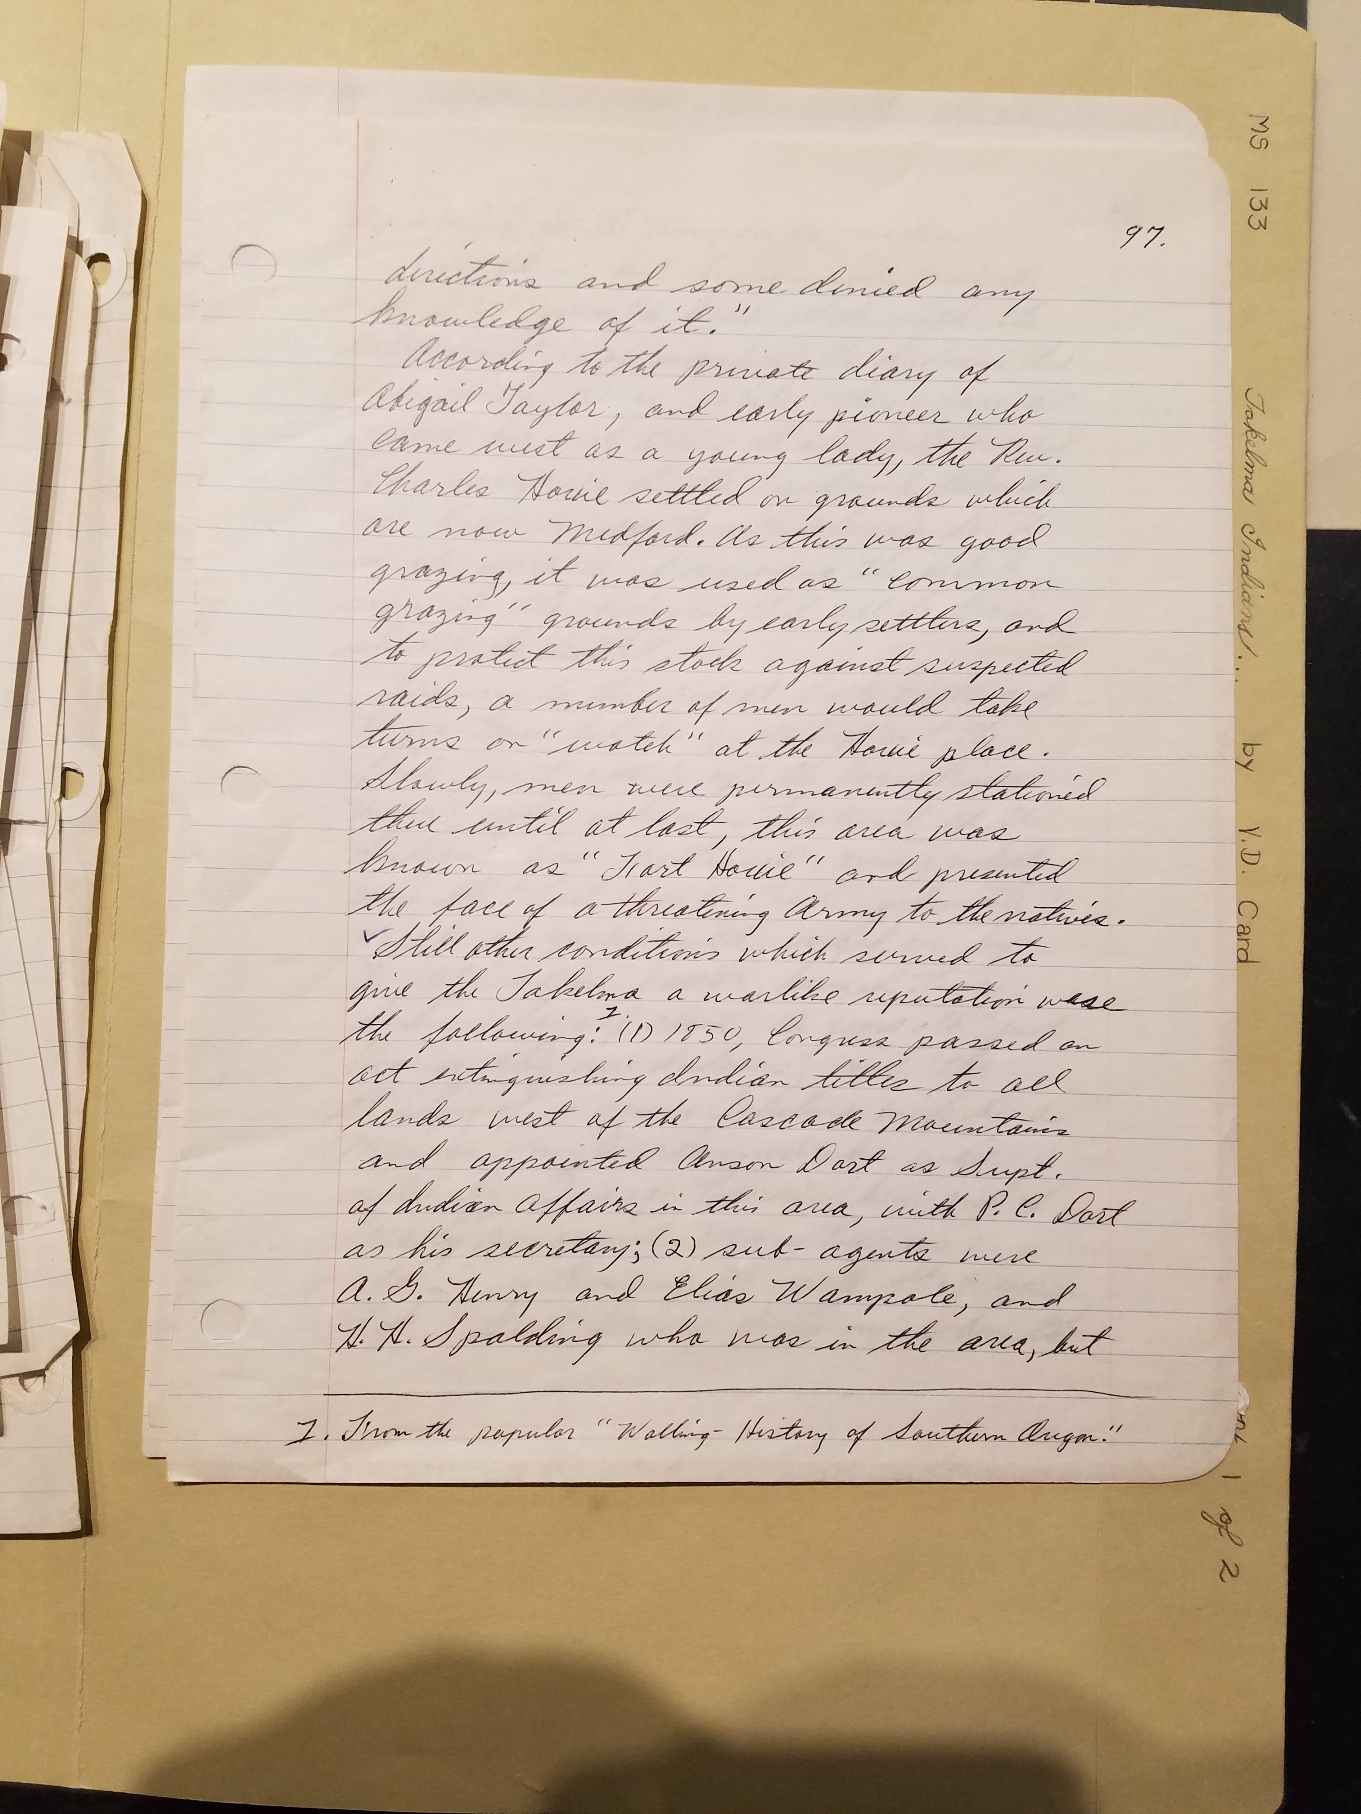 97.
directions and some denied any
knowledge of it."
According to the private diary of
Abigail Taylor, and early pioneer who
came west as a young lady, the Rev.
Charles Howie settled on grounds which
are now Medford. As this was good
grazing, it was used as "common
grazing" grounds by early settlers, and
to protect this stock against suspected
raids, a number of men would take
turns on "watch" at the Howie place.
Slowly, men were permanently stationed
there until at last, this area was
known as "Fort Howie" and presented
the face of a threatening Army to the natives.
✓ Still other conditions which served to
give the Takelma a warlike reputation were
the following:1 (1) 1850, Congress passed an
act extinguishing Indian titles to all
lands west of the Cascade Mountains
and appointed Anson Dart as Supt.
of Indian Affairs in this area, with P. C. Dart
as his secretary; (2) sub-agents were
A. G. Henry and Elias Wampole, and
H. H. Spalding who was in the area, but
1. From the popular "Walling- History of Southern Oregon."
MS 133 Takelma Indians... by V.D. Card 1 of 2